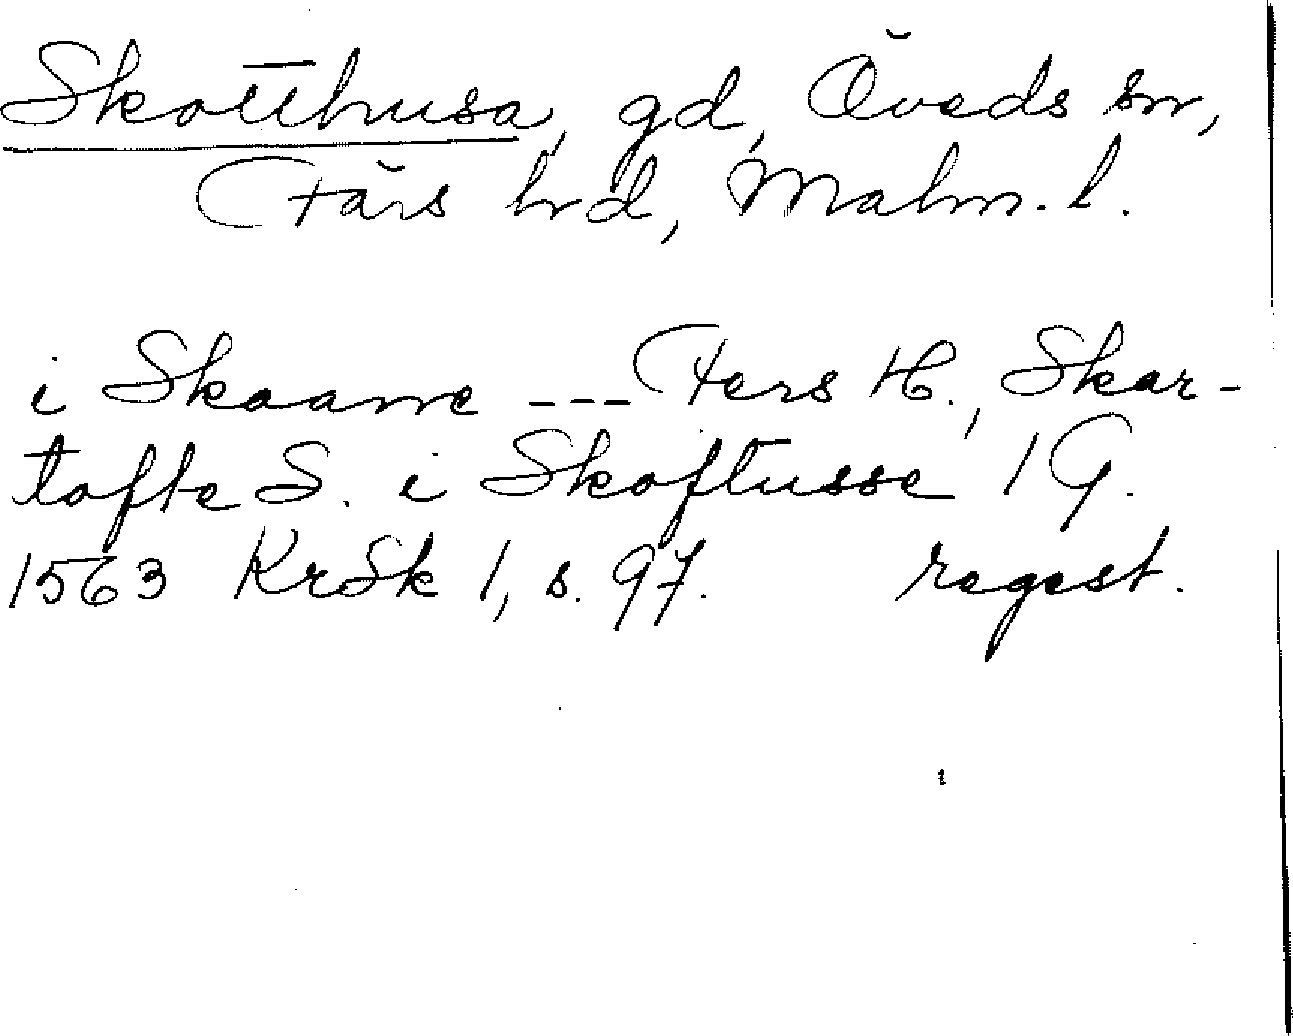 Skotthusa, gd, Öveds sn,
Färs hrd, Malm. l.
i Skaanne --- Fers H., Skar-
tofte S. i Skoftusse 1 G.
1563 KrSk 1, s. 97. regest.